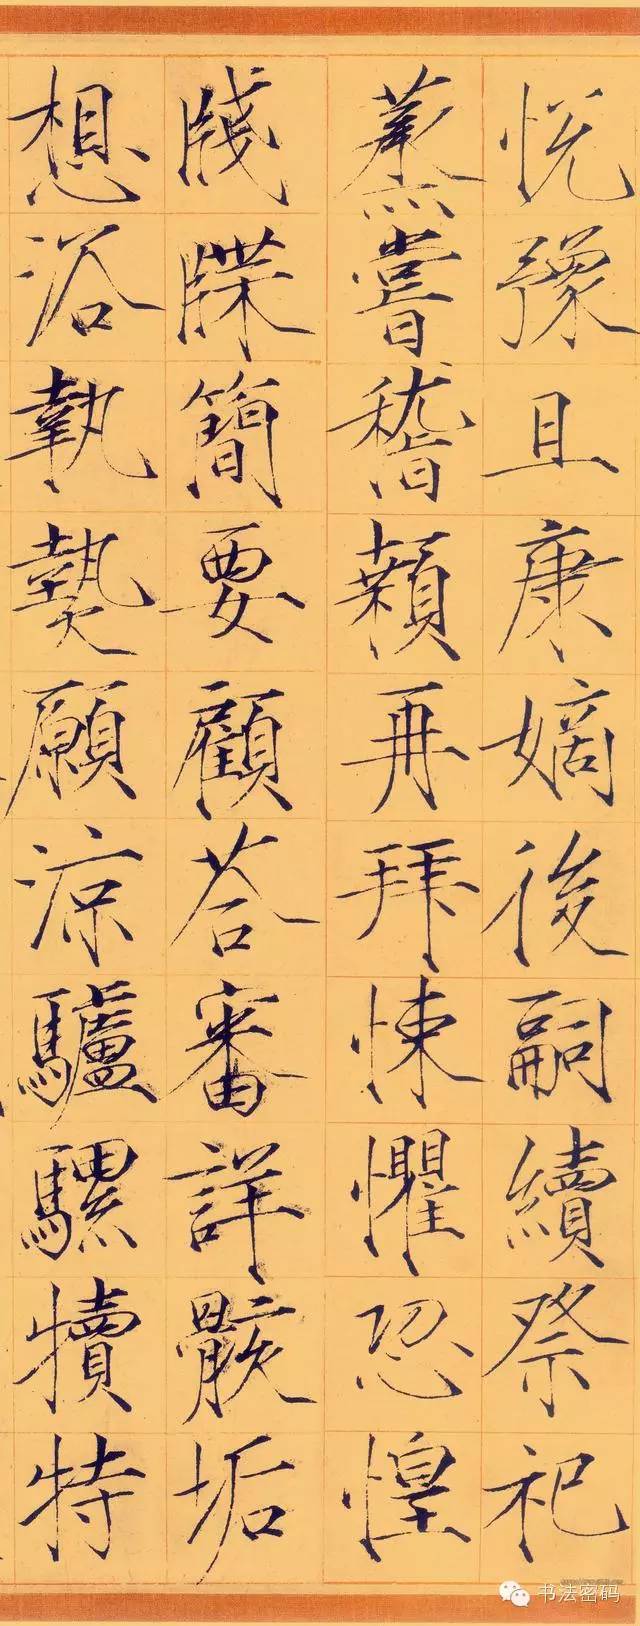 悦豫且康嫡後嗣續祭祀
蒸嘗稽顙再拜悚懼恐惶
牋牒簡要顧荅審詳骸垢
想浴執熱願涼驢騾犢特
书法密码